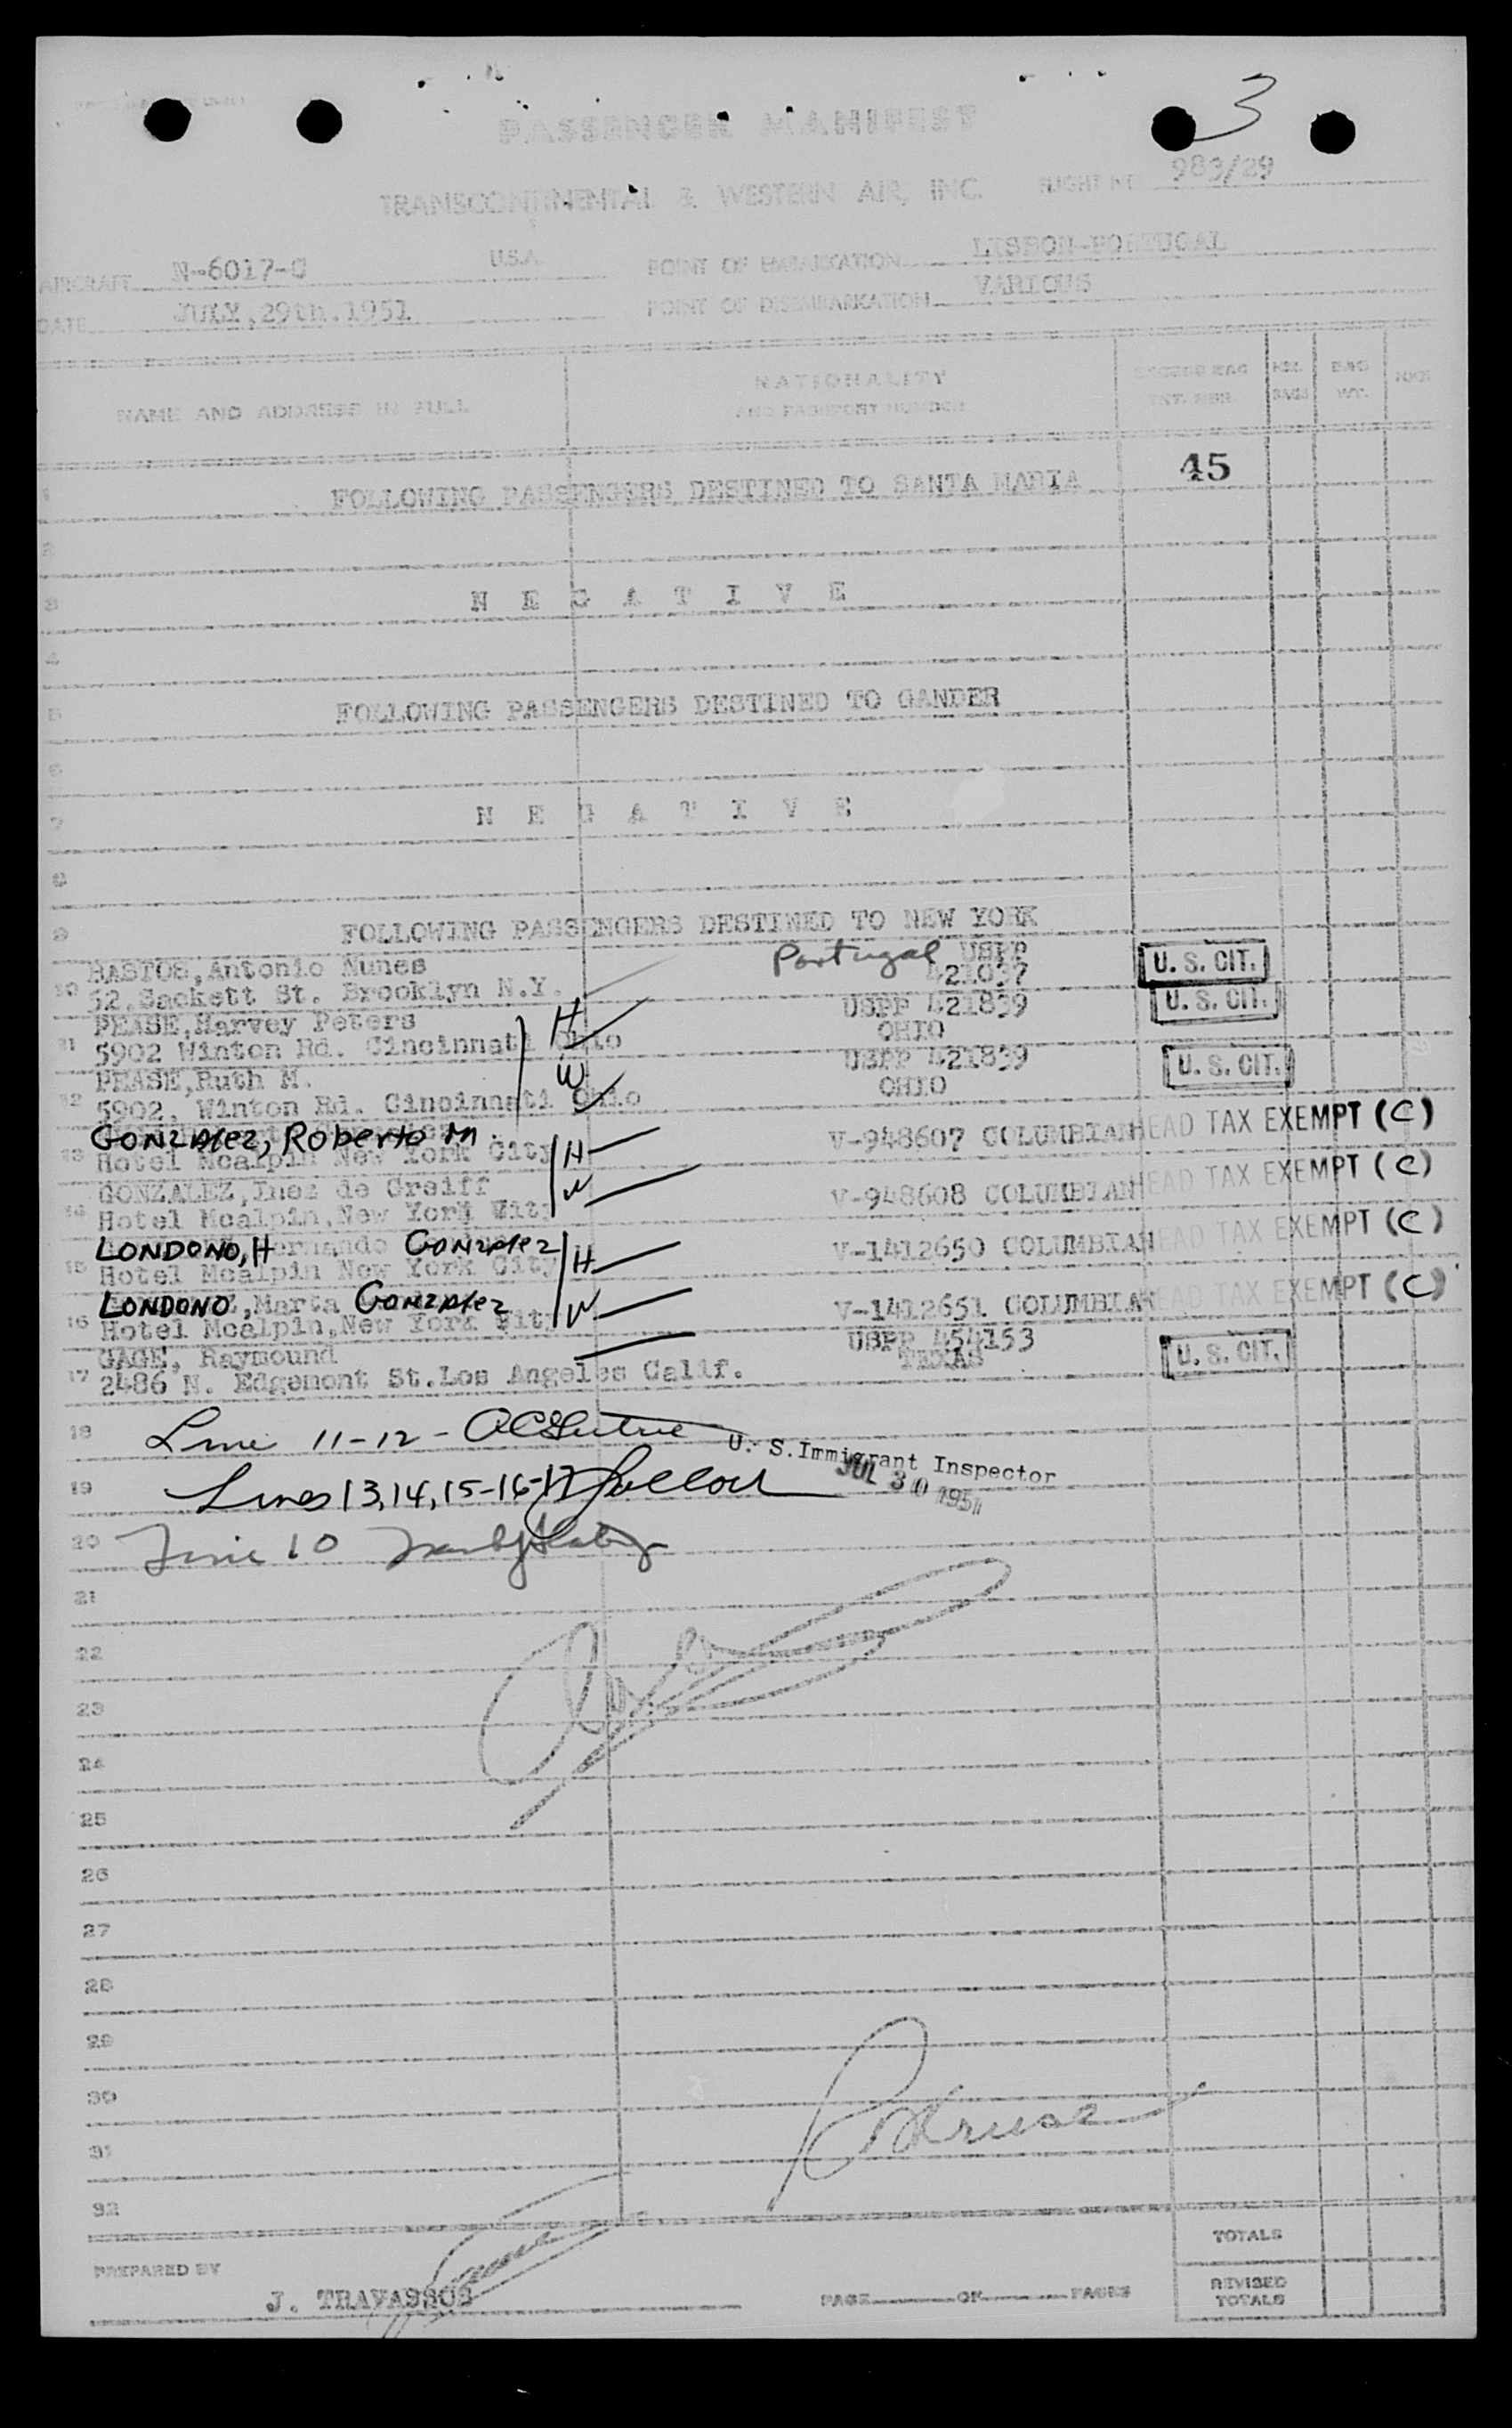 3
PASSENGER MANIFEST
TRANSCONTINENTAL & WESTERN AIR, INC. FLIGHT NO 983/29
AIRCRAFT N-6017-C U.S.A. POINT OF EMBARKATION LISBON-PORTUGAL
DATE JULY,29th.1951 POINT OF DISEMBARKATION VARIOUS
NAME AND ADDRESS IN FULL NATIONALITY AND PASSPORT NUMBER EXCESS BAG TKT. NBR. NBR. BAGS BAG WT.
1 FOLLOWING PASSENGERS DESTINED TO SANTA MARIA 45
2
3 N E G A T I V E
4
5 FOLLOWING PASSENGERS DESTINED TO GANDER
6
7 N E G A T I V E
8
9 FOLLOWING PASSENGERS DESTINED TO NEW YORK
BASTOS,Antonio Nunes Portugal USPP
10 52,Sackett St. Brooklyn N.Y. 421037 U. S. CIT.
PEASE,Harvey Peters H USPP 421839 U. S. CIT.
11 5902 Winton Rd. Cincinnati Ohio OHIO
PEASE,Ruth M. W USPP 421839 U. S. CIT.
12 5902, Winton Rd. Cincinnati Ohio OHIO
GONZALEZ, Roberto M V-948607 COLUMBIAN HEAD TAX EXEMPT (C)
13 Hotel Mcalpin New York City H
GONZALEZ,Inez de Greiff W V-948608 COLUMBIAN HEAD TAX EXEMPT (C)
14 Hotel Mcalpin,New York City
LONDONO, Hernando GONZALEZ V-1412650 COLUMBIAN HEAD TAX EXEMPT (C)
15 Hotel Mcalpin New York City H
LONDONO,Marta GONZALEZ V-1412651 COLUMBIAN HEAD TAX EXEMPT (C)
16 Hotel Mcalpin,New York City W
GAGE, Raymound USPP 454153 U. S. CIT.
17 2486 N. Edgemont St.Los Angeles Calif. TEXAS
18 Line 11-12 -
U. S. Immigrant Inspector
19 Lines 13,14,15-16-17 JUL 30 1951
20 Line 10
21
22
23
24
25
26
27
28
29
30
31
32
TOTALS
PREPARED BY J. TRAVASSOS PAGE OF PAGES REVISED TOTALS